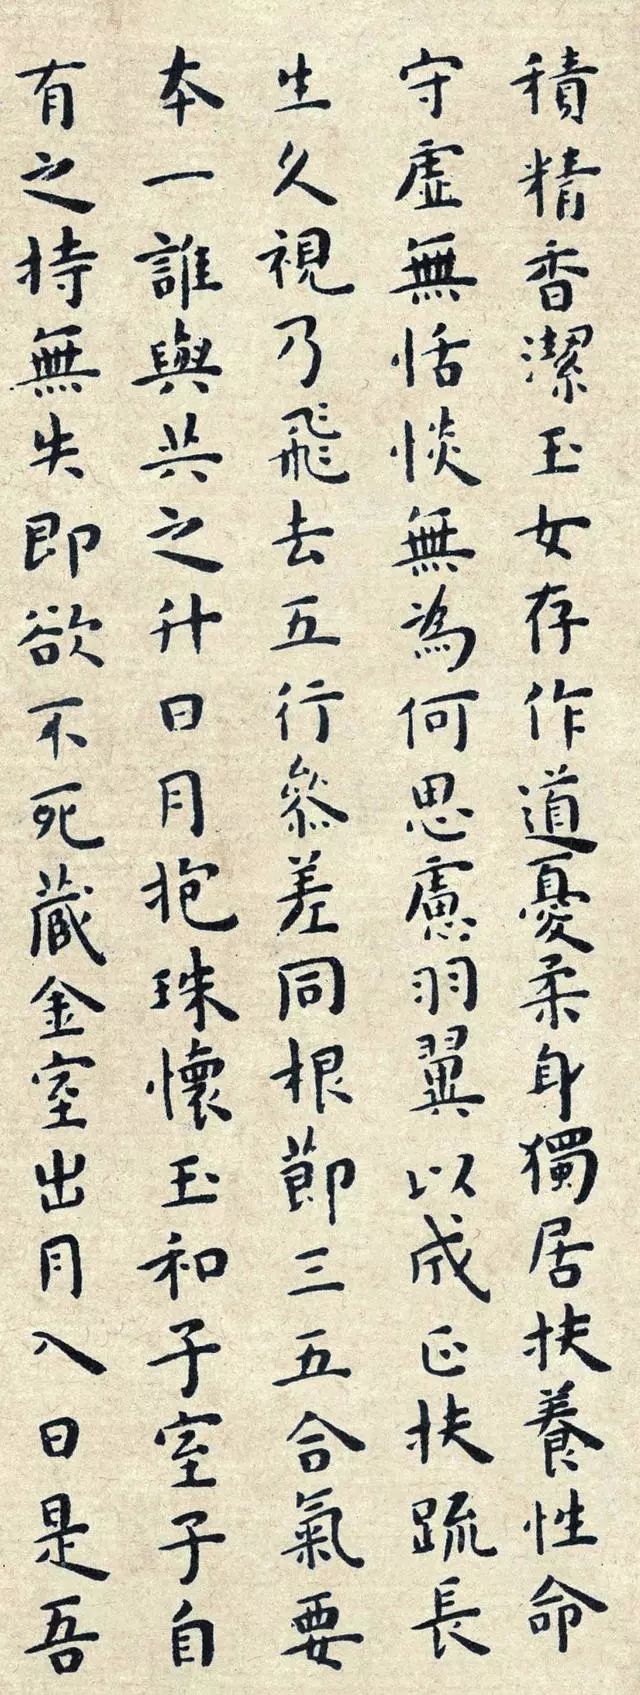 積精香潔玉女存作道憂柔身獨居扶養性命
守虛無恬惔無為何思慮羽翼以成正扶疏長
生久視乃飛去五行叅差同根節三五合氣要
本一誰與共之升日月抱珠懷玉和子室子自
有之持無失即欲不死藏金室出月入日是吾